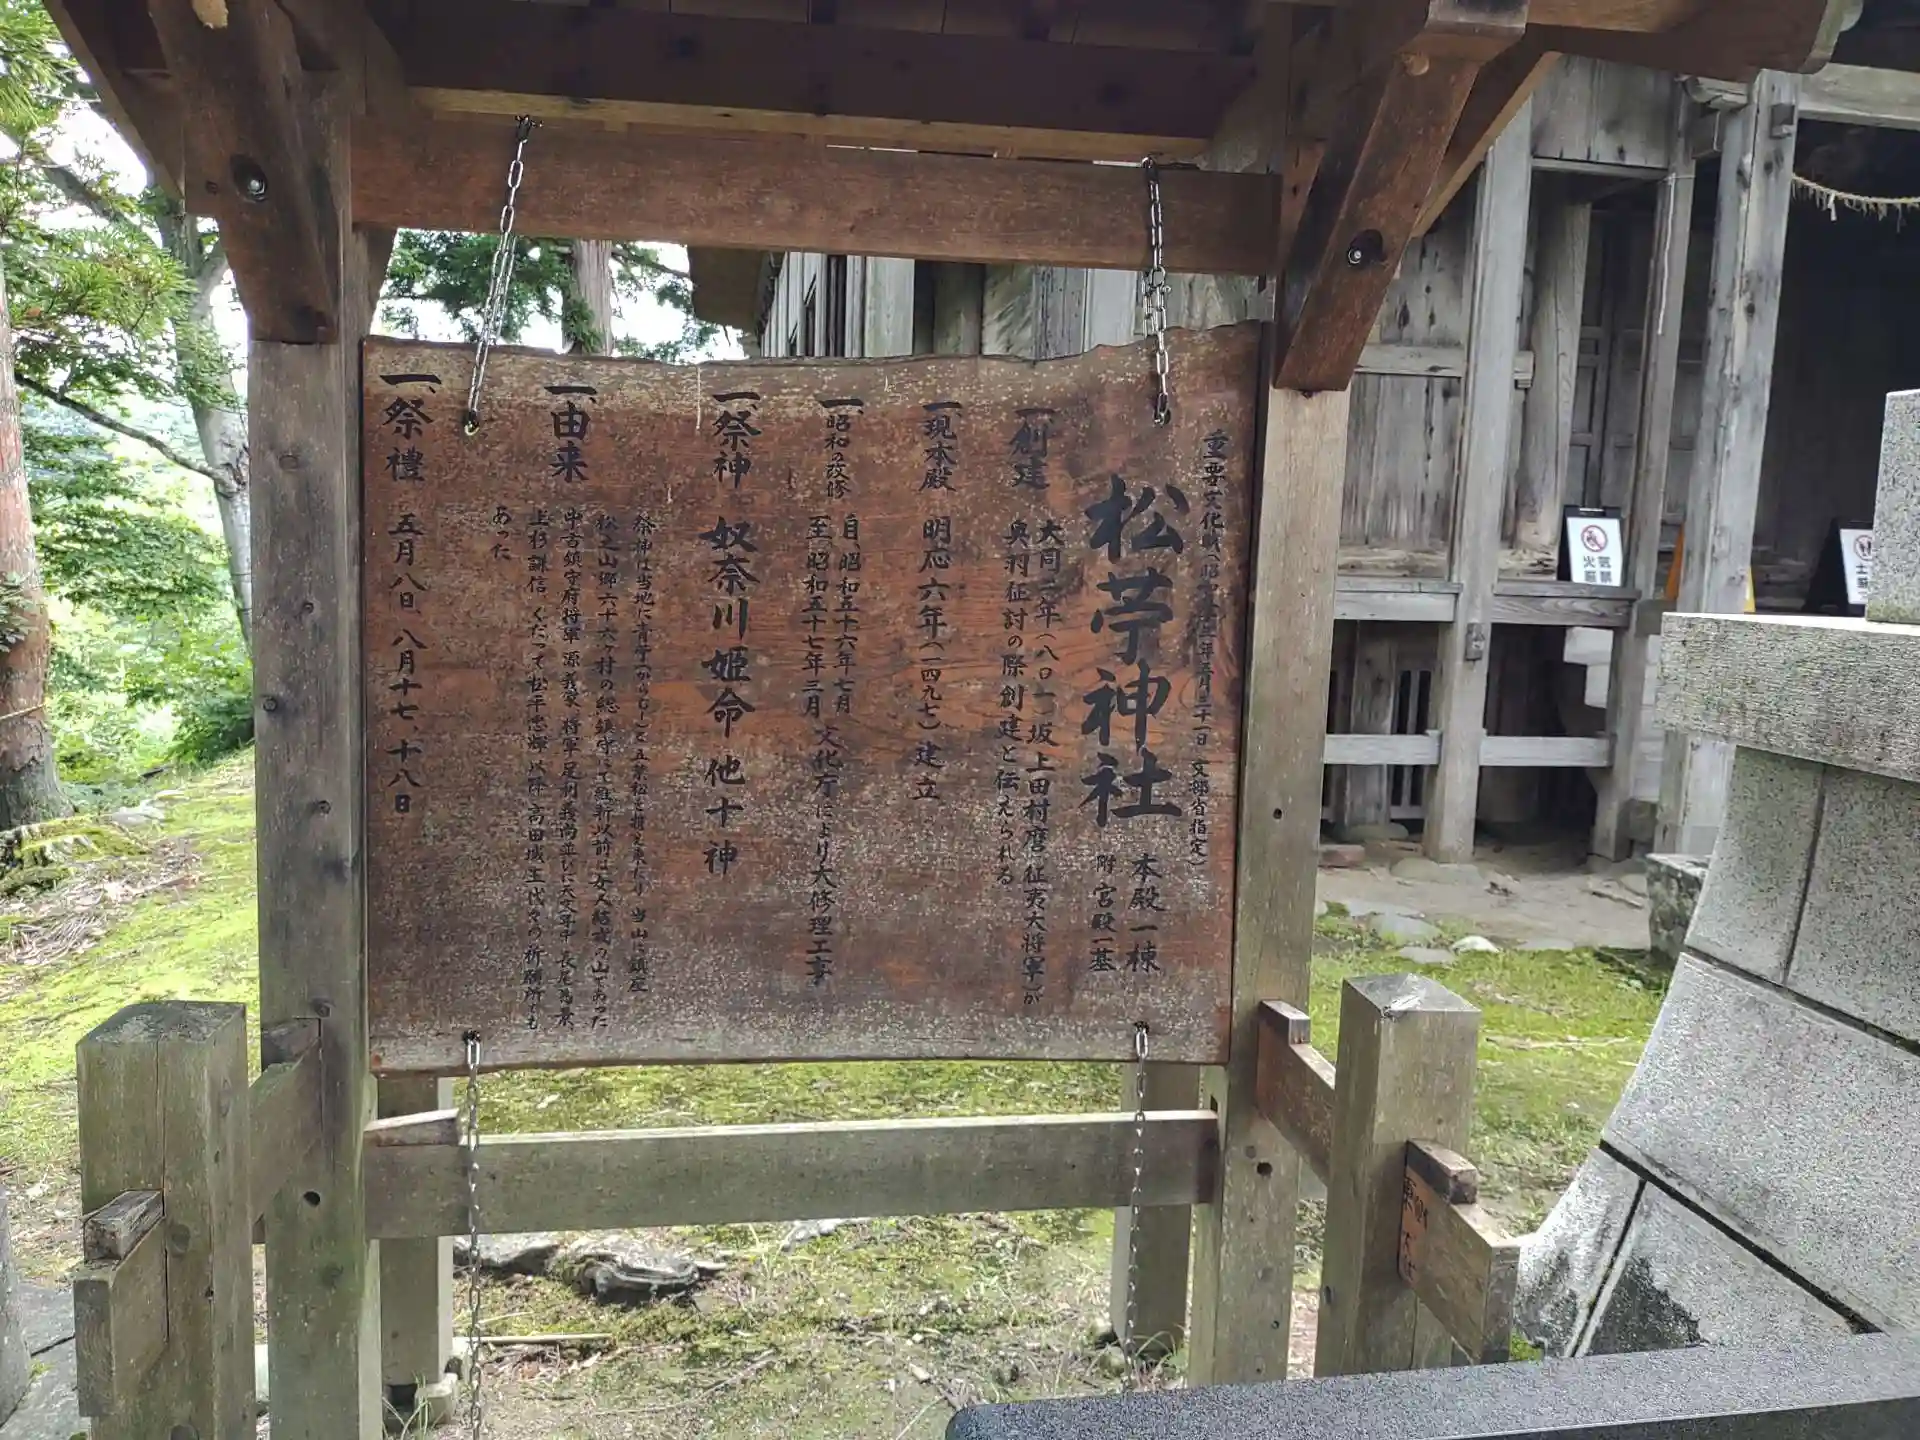 重要文化財(昭和五十三年五月三十一日 文部省指定)
松苧神社 本殿一棟
附 宮殿一基
一、創建 大同二年(八〇一)坂上田村麿(征夷大将軍)が
奥羽征討の際創建と伝えられる
一、現本殿 明応六年(一四九七)建立
一、昭和の改修 自 昭和五十六年七月
至 昭和五十七年三月 文化庁により大修理工事
一、祭神 奴奈川姫命 他十神
祭神は当地に青苧(からむし)と五葉松を携え来たり 当山に鎮座
一、由来 松之山郷六十六ヶ村の総鎮守にて維新以前は女人結戒の山であった
中古鎮守府将軍 源義家 将軍足利義尚並びに天文年中 長尾為景
上杉謙信 くだって松平忠輝 以降高田城主代々の祈願所でも
あった
一、祭禮 五月八日、八月十七、十八日
火気厳禁